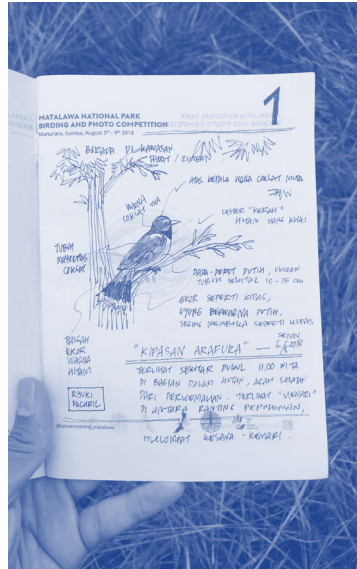 1
MATALAWA NATIONAL PARK
BIRDING AND PHOTO COMPETITION
Manurara, Sumba, August 5th - 9th 2018
BERADA DI KAWASAN
RAPAT / RIMBUN
ATAS KEPALA WARNA COKLAT MUDA
WARNA
COKLAT TUA
LEHER "KERAH"
HITAM YANG KHAS
TUBUH
MAYORITAS
COKLAT
DADA - PERUT PUTIH, UKURAN
TUBUH SEKITAR 10 - 15 cm
EKOR SEPERTI KIPAS,
UJUNG BERWARNA PUTIH,
SERING MEMBUKA SEPERTI KIPAS
TENGAH
EKOR
WARNA
HITAM
SENIN
6/8 2018
"KIPASAN ARAFURA"
TERLIHAT SEKITAR PUKUL 11.00 WITA
DI BAGIAN DALAM HUTAN, AGAK
DARI PERKEMAHAN. TERLIHAT "MENARI"
DI ANTARA RANTING PEPOHONAN,
MELOMPAT KESANA - KEMARI.
@tamannasional_matalawa